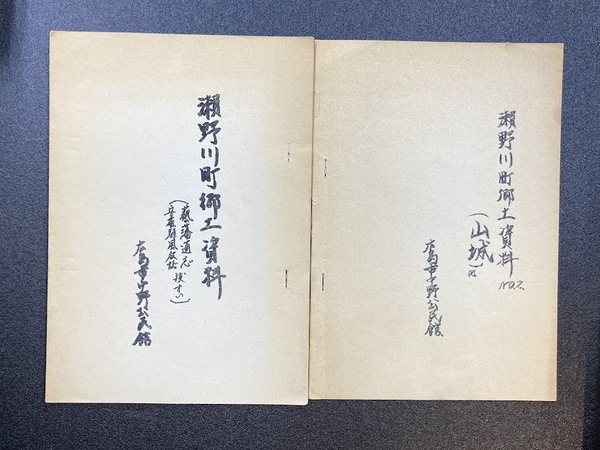 瀬野川町郷土資料
(芸藩通志
安芸郡風俗誌 抜すい)
広島市中野公民館
瀬野川町郷土資料 No.2
(山城)他
広島市中野公民館